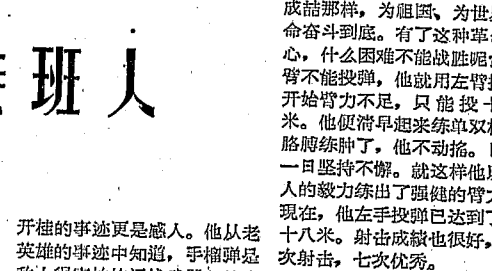 班人
开桂的事迹更是感人。他从老
英雄的事迹中知道，手榴弹是
成喆那样，为祖国、为世
命奋斗到底。有了这种革
心，什么困难不能战胜呢
臂不能投弹，他就用左臂
开始臂力不足，只能投十
米。他便清早起来练单双
胳膊练肿了，他不动摇。
一日坚持不懈。就这样他
人的毅力练出了强健的臂
现在，他左手投弹已达到了
十八米。射击成绩也很好，
次射击，七次优秀。